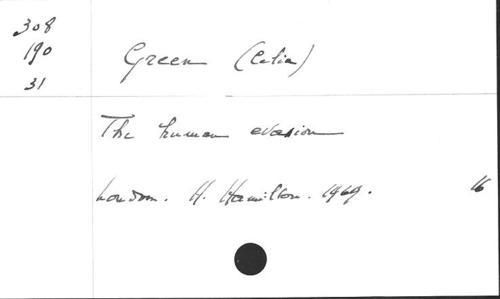 308
190
31
Green (Celia)
The human evasion
London. H. Hamilton. 1969.
16